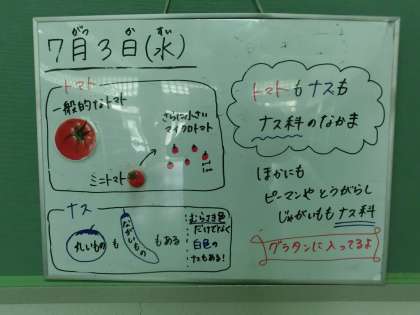 7月3日(水)
がつ か すい
トマト
一般的なトマト
さらに小さい
マイクロトマト
ミニトマト
トマトもナスも
ナス科のなかま
ほかにも
ピーマンやとうがらし
じゃがいももナス科
グラタンに入ってるよ
ナス
丸いものも
ながいもの
もある
むらさき色
だけでなく
白色の
ナスもある!